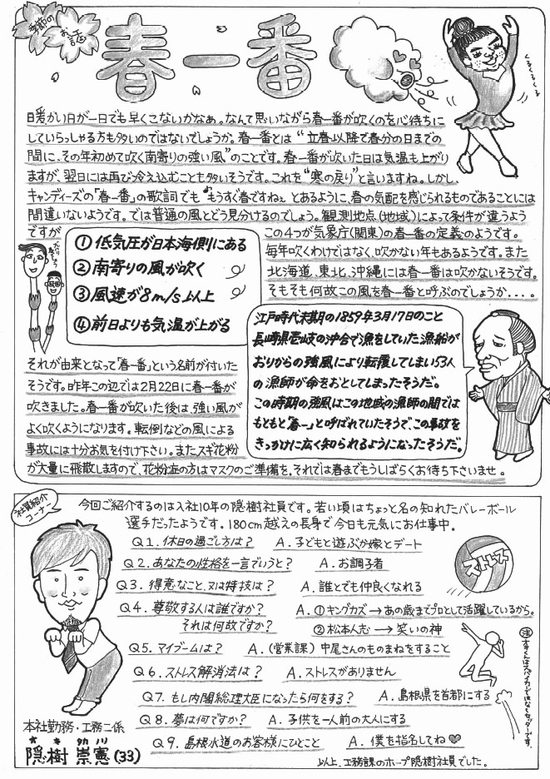 季節のお話
春一番
くるくるくる
暖かい日が一日でも早くこないかなぁ。なんて思いながら春一番が吹くのを心待ちに
していらっしゃる方も多いのではないでしょうか。春一番とは“立春以降で春分の日までの
間に、その年初めて吹く南寄りの強い風”のことです。春一番が吹いた日は気温も上がり
ますが、翌日には再び冷え込むことも多いそうです。これを“寒の戻り”と言いますね。しかし、
キャンディーズの「春一番」の歌詞でも“もうすぐ春ですね”とあるように、春の気配を感じられるものであることには
間違いないようです。では普通の風とどう見分けるのでしょう。観測地点(地域)によって条件が違うよう
ですが
この4つが気象庁(関東)の春一番の定義のようです。
①低気圧が日本海側にある
②南寄りの風が吹く
③風速が8m/s以上
④前日よりも気温が上がる
毎年吹くわけではなく、吹かない年もあるようです。また
北海道、東北、沖縄には春一番は吹かないそうです。
そもそも何故この風を春一番と呼ぶのでしょうか....。
江戸時代末期の1859年3月17日のこと
長崎県壱岐の沖合で漁をしていた漁船が
おりからの強風により転覆してしまい53人
の漁師が命をおとしてしまったそうだ。
この時期の強風はこの地域の漁師の間では
もともと「春一」と呼ばれていたそうで、この事故を
きっかけに広く知られるようになったそうだ。
それが由来となって「春一番」という名前が付いた
そうです。昨年この辺では2月22日に春一番が
吹きました。春一番が吹いた後は、強い風が
よく吹くようになります。転倒などの風による
事故には十分お気を付け下さい。またスギ花粉
が大量に飛散しますので、花粉症の方はマスクのご準備を。それでは春までもうしばらくお待ち下さいませ。
社員紹介コーナー
今回ご紹介するのは入社10年の隠樹社員です。若い頃はちょっと名の知れたバレーボール
選手だったようです。180cm越えの長身で今日も元気にお仕事中。
Q1.休日の過ごし方は? A.子どもと遊ぶか嫁とデート
Q2.あなたの性格を一言でいうと? A.お調子者
Q3.得意なこと、又は特技は? A.誰とでも仲良くなれる
Q4.尊敬する人は誰ですか? A.①キングカズ→あの歳までプロとして活躍しているから。
それは何故ですか? ②松本人志→笑いの神
Q5.マイブームは? A.(営業課)中尾さんのものまねをすること
Q6.ストレス解消法は? A.ストレスがありません
Q7.もし内閣総理大臣になったら何をする? A.島根県を首都にする
Q8.夢は何ですか? A.子供を一人前の大人にする
Q9.島根水道のお客様にひとこと A.僕を指名してね♥
ストレス
本社勤務・工務二係
隠樹 崇憲(33)
以上、工務課のホープ隠樹社員でした。